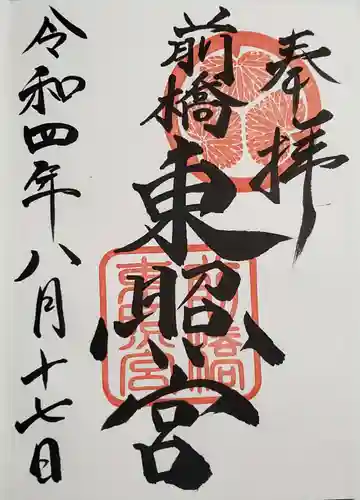 奉拝
前橋
東照宮
令和四年八月十七日
前橋
東照宮